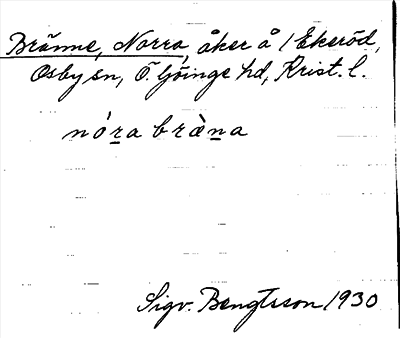 Bränne, Norra, åker å 1 Ekeröd,
Osby sn, Ö. Göinge hd, Krist. l.
nóra bràna
Sigv. Bengtsson 1930